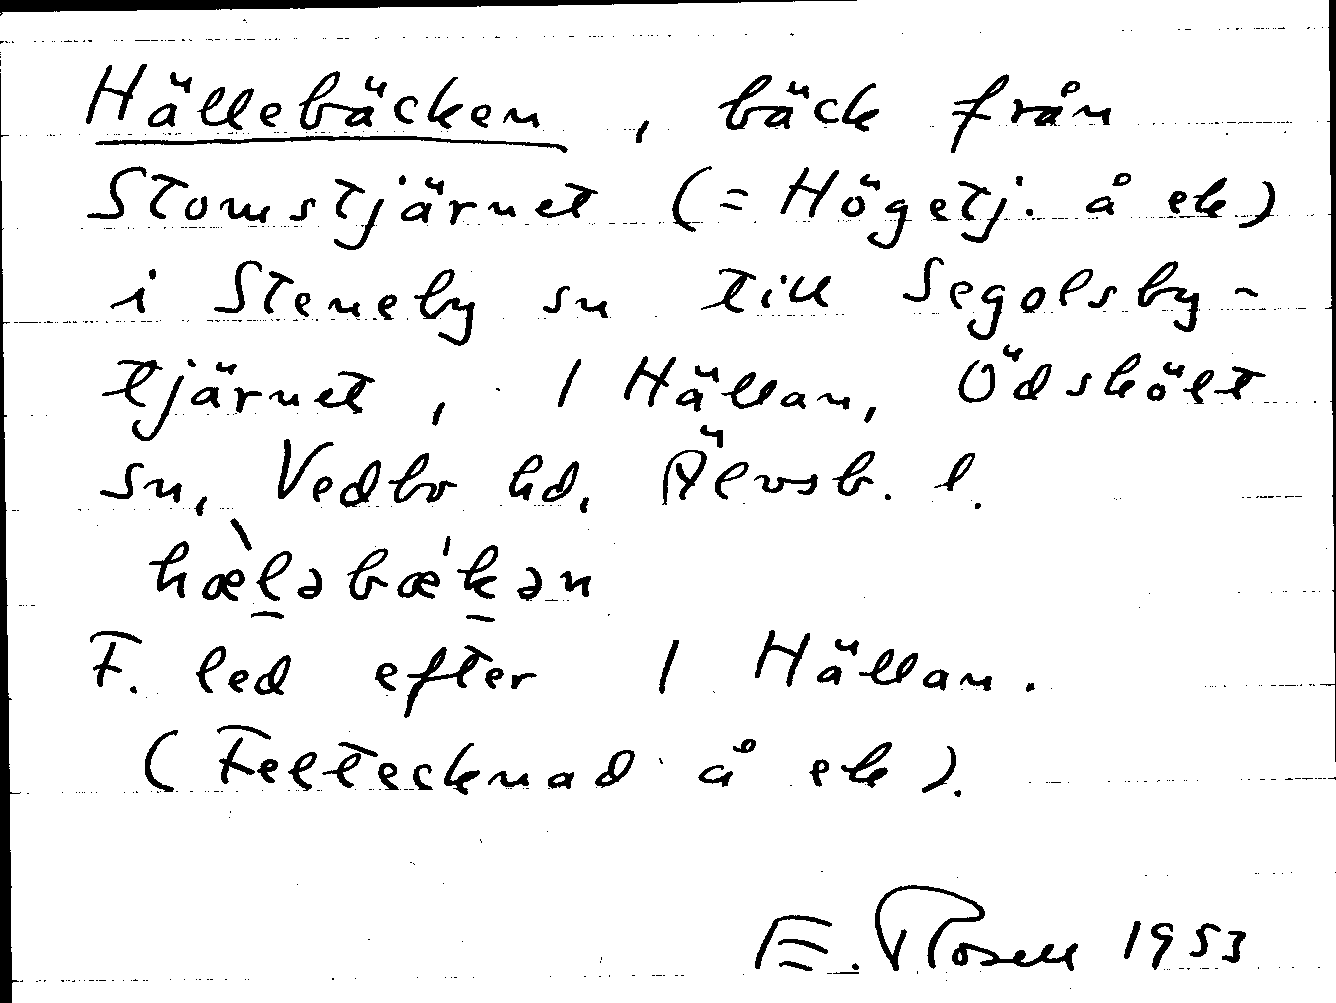 Hällebäcken, bäck från
Stomstjärnet (= Högetj. å ek)
i Steneby sn till Segolsby-
tjärnet, 1 Hällan, Ödskölt
sn, Vedbo hd, Älvsb. l.
hæ̀l̠əbæ'k̠ən
F. led efter 1 Hällan.
(Feltecknad å ek).
E. Rosell 1953